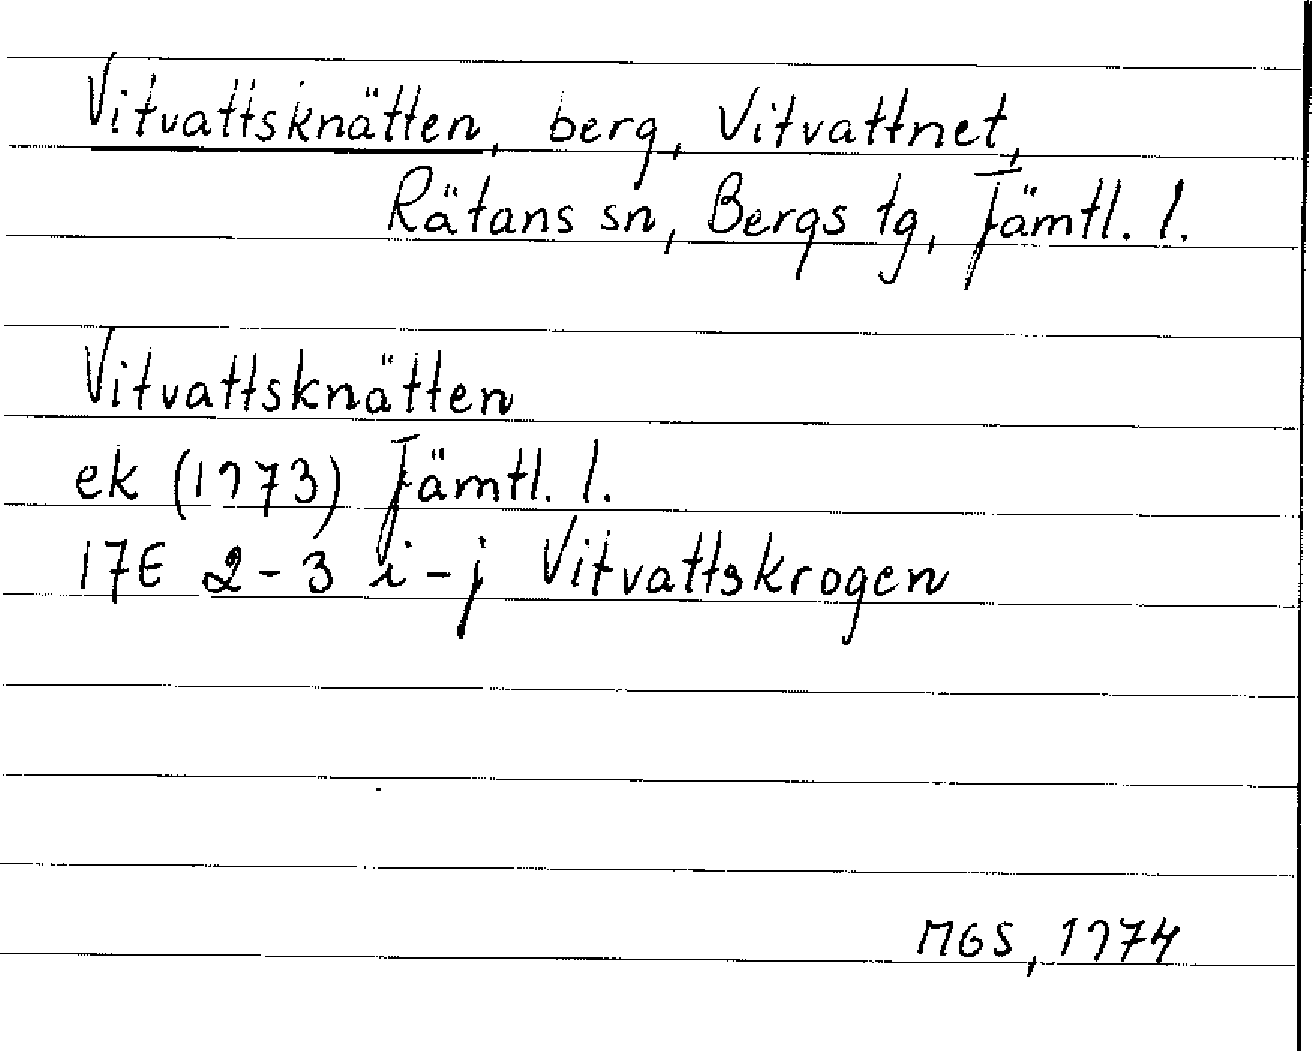 Vitvattsknätten, berg, Vitvattnet,
Rätans sn, Bergs tg, Jämtl. l.
Vitvattsknätten
ek (1973) Jämtl. l.
17E 2-3 i-j Vitvattskrogen
MGS, 1974